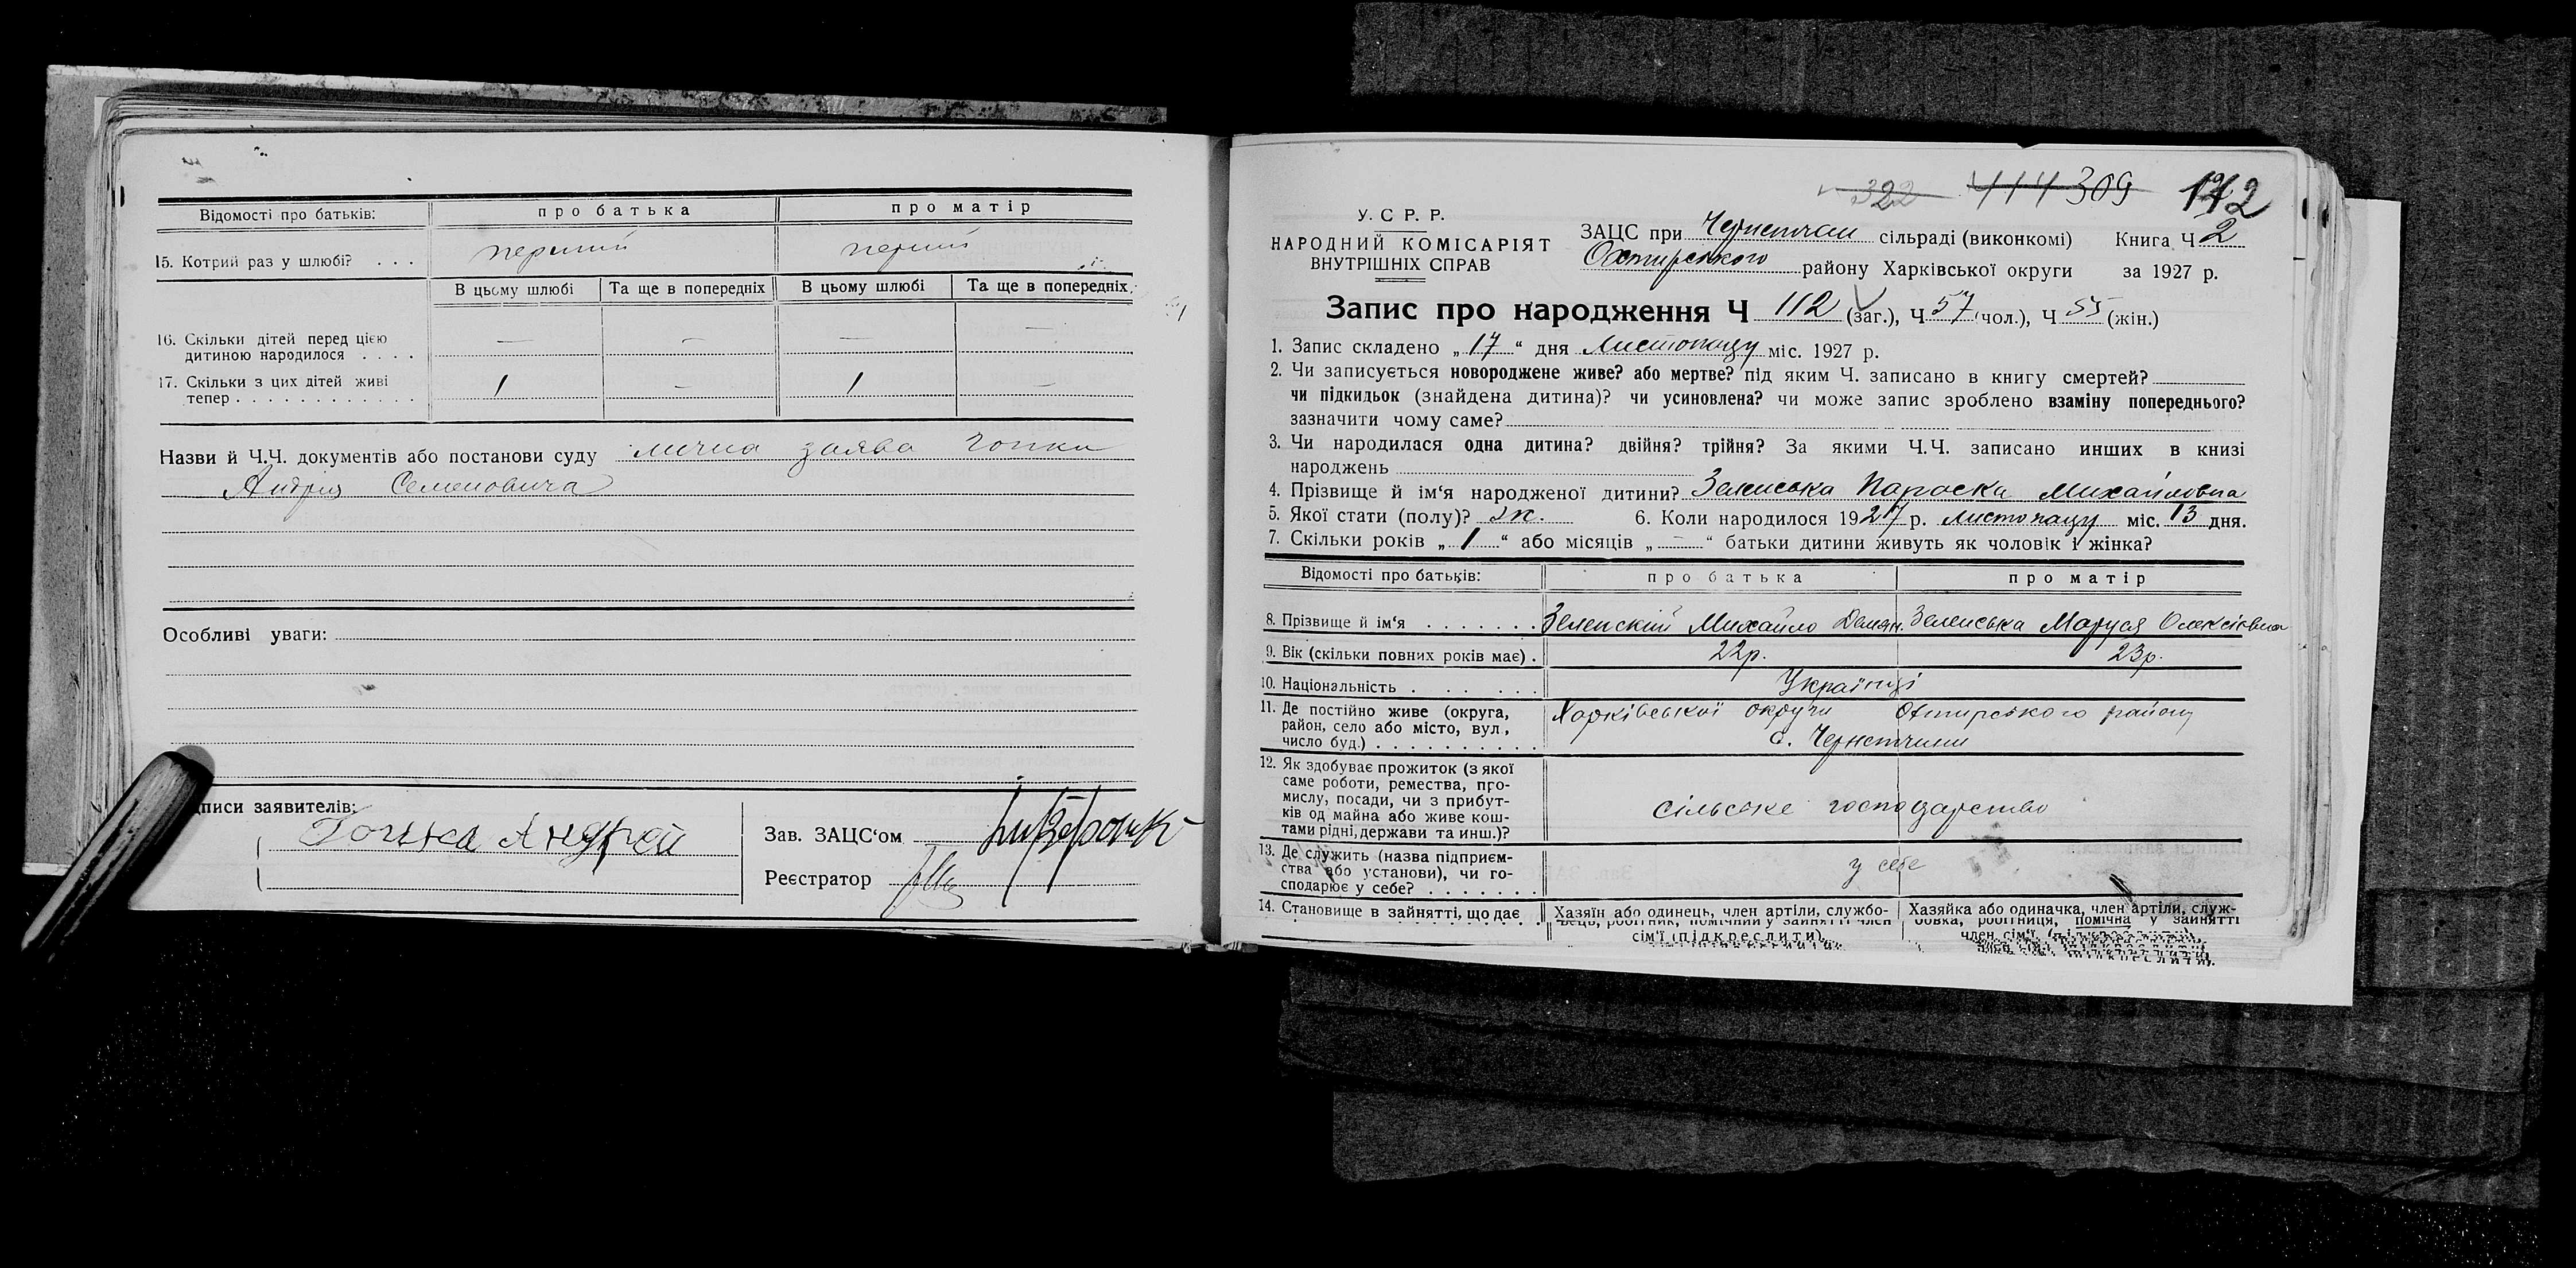 Відомості про батьків: про батька про матір
15. Котрий раз у шлюбі? . . . перший перший
В цьому шлюбі Та ще в попередніх В цьому шлюбі Та ще в попередніх
16. Скільки дітей перед цією
дитиною народилося . . . . — — — —
17. Скільки з цих дітей живі
тепер . . . . . . . . . . . . . 1 — 1 —
Назви й Ч.Ч. документів або постанови суду лична заява Гопки
Андрія Семеновича
Особливі уваги:
писи заявителів:
Гопка Андрей
Зав. ЗАЦС‘ом
Реєстратор
322 414 309 112
У. С Р. Р.
НАРОДНИЙ КОМІСАРІЯТ
ВНУТРІШНІХ СПРАВ
ЗАЦС при Чернетчан сільраді (виконкомі) Книга Ч 2
Охтирського району Харківської округи за 1927 р.
Запис про народження Ч 112 (заг.), Ч 57 (чол.), Ч 55 (жін.)
1. Запис складено „17“ дня Листопаду міс. 1927 р.
2. Чи записується новороджене живе? або мертве? під яким Ч. записано в книгу смертей?
чи підкидьок (знайдена дитина)? чи усиновлена? чи може запис зроблено взаміну попереднього?
зазначити чому саме?
3. Чи народилася одна дитина? двійня? трійня? За якими Ч.Ч. записано инших в книзі
народжень
4. Прізвище й ім‘я народженої дитини? Зеленська Параска Михайловна
5. Якої стати (полу)? ж. 6. Коли народилося 1927 р. листопаду міс. 13 дня.
7. Скільки років „1“ або місяців „—“ батьки дитини живуть як чоловік і жінка?
Відомості про батьків: про батька про матір
8. Прізвище й ім‘я . . . . . . . Зеленский Михайло Демян. Зеленська Маруся Олексіовна
9. Вік (скільки повних років має) . 22р. 23р.
10. Національність . . . . . . Українці
11. Де постійно живе (округа, Харківської округи Охтирського району
район, село або місто, вул., с. Чернетчини
число буд.) . . . . . . . . . .
12. Як здобуває прожиток (з якої
саме роботи, ремества, про-
мислу, посади, чи з прибут- сільське господарство
ків од майна або живе кош-
тами рідні, держави та инш.)?
13. Де служить (назва підприєм- у себе
ства або установи), чи го-
сподарює у себе? . . . . . . .
14. Становище в зайнятті, що дає Хазяїн або одинець, член артіли, службо- Хазяйка або одиначка, член артіли, служ-
вець, робітник, помічний у зайнятті член бовка, робітниця, помічна у зайнятті
сім‘ї (підкреслити). член сім‘ї